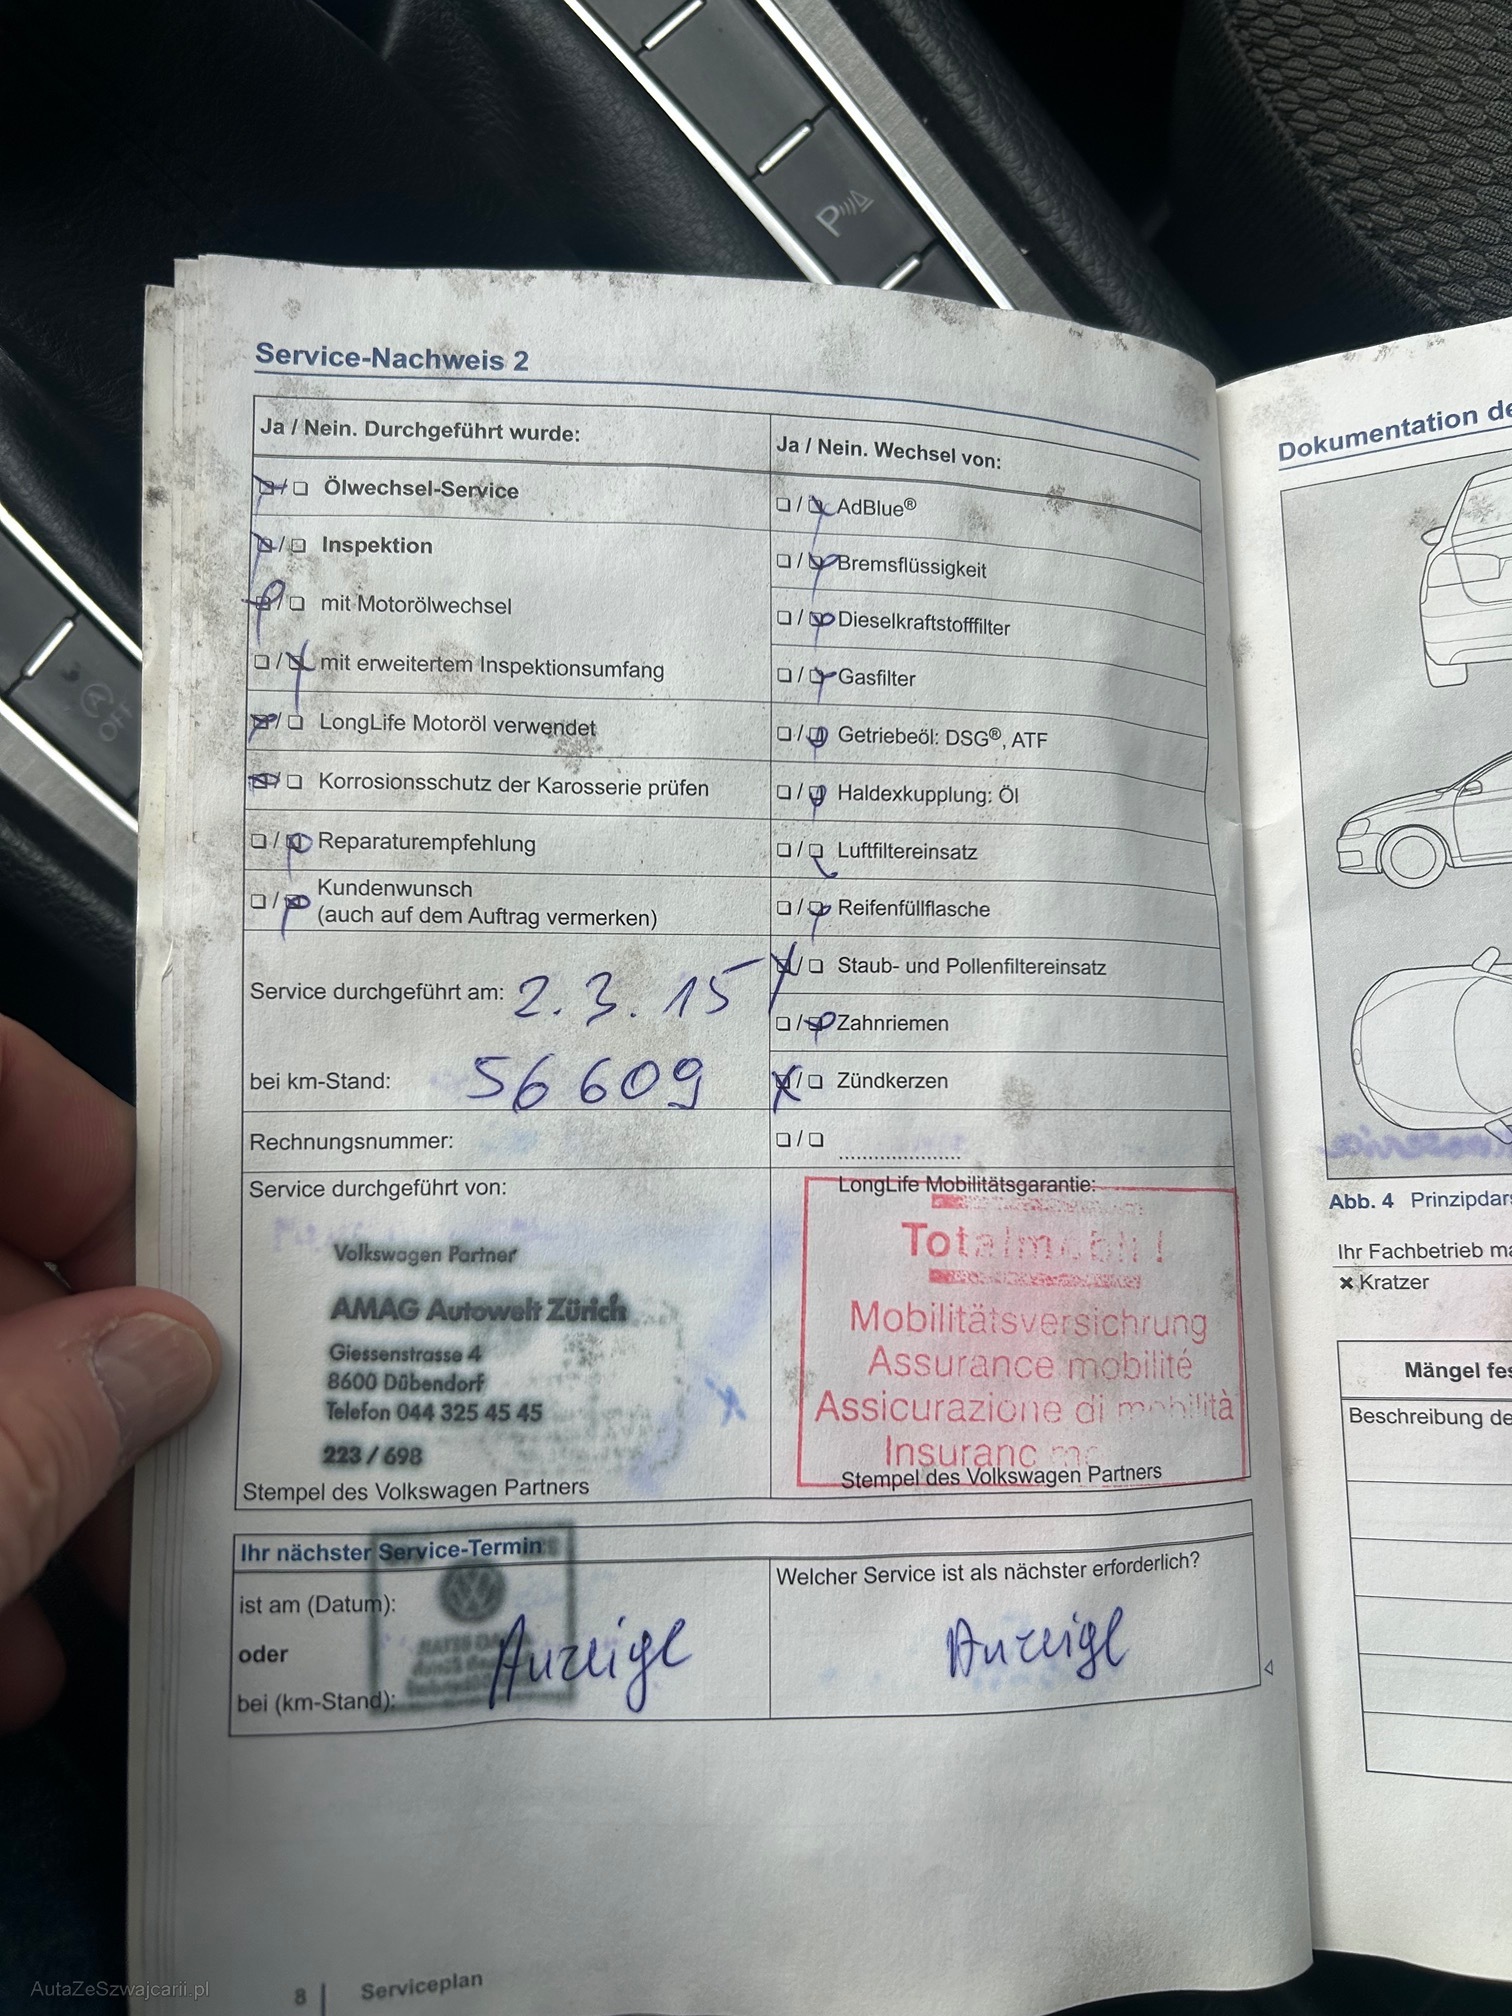 P
OFF
Service-Nachweis 2
Ja / Nein. Durchgeführt wurde:
Ölwechsel-Service
Inspektion
mit Motorölwechsel
mit erweitertem Inspektionsumfang
LongLife Motoröl verwendet
Korrosionsschutz der Karosserie prüfen
Reparaturempfehlung
Kundenwunsch
(auch auf dem Auftrag vermerken)
Service durchgeführt am: 2.3.15
bei km-Stand: 56 609
Rechnungsnummer:
Service durchgeführt von:
Volkswagen Partner
AMAG Autowelt Zürich
Giessenstrasse 4
8600 Dübendorf
Telefon 044 325 45 45
223 / 698
Stempel des Volkswagen Partners
Ja / Nein. Wechsel von:
AdBlue®
Bremsflüssigkeit
Dieselkraftstofffilter
Gasfilter
Getriebeöl: DSG®, ATF
Haldexkupplung: Öl
Luftfiltereinsatz
Reifenfüllflasche
Staub- und Pollenfiltereinsatz
Zahnriemen
Zündkerzen
LongLife Mobilitätsgarantie:
Totalmobil!
Mobilitätsversichrung
Assurance mobilité
Assicurazione di mobilità
Stempel des Volkswagen Partners
Ihr nächster Service-Termin
ist am (Datum):
oder
bei (km-Stand):
Anzeige
Welcher Service ist als nächster erforderlich?
Anzeige
8 | Serviceplan
Dokumentation
Abb. 4
Ihr Fachbetrieb
✖ Kratzer
Mängel
Beschreibung
AutaZeSzwajcarii.pl